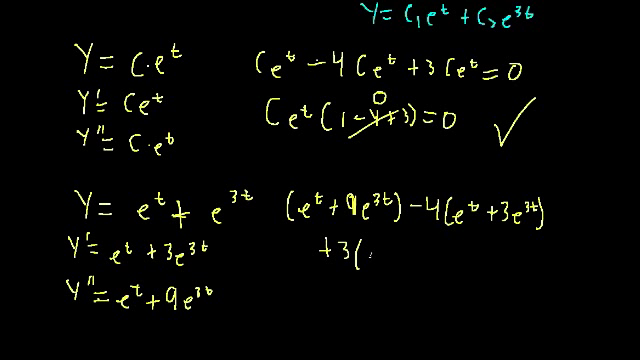 Y = C₁e^t + C₂e^3t
Y = C·e^t
Y' = Ce^t
Y" = C·e^t
Ce^t - 4Ce^t + 3Ce^t = 0
0
Ce^t (1-4+3) = 0 ✓
Y = e^t + e^3t
Y' = e^t + 3e^3t
Y" = e^t + 9e^3t
(e^t + 9e^3t) - 4(e^t + 3e^3t)
+3(